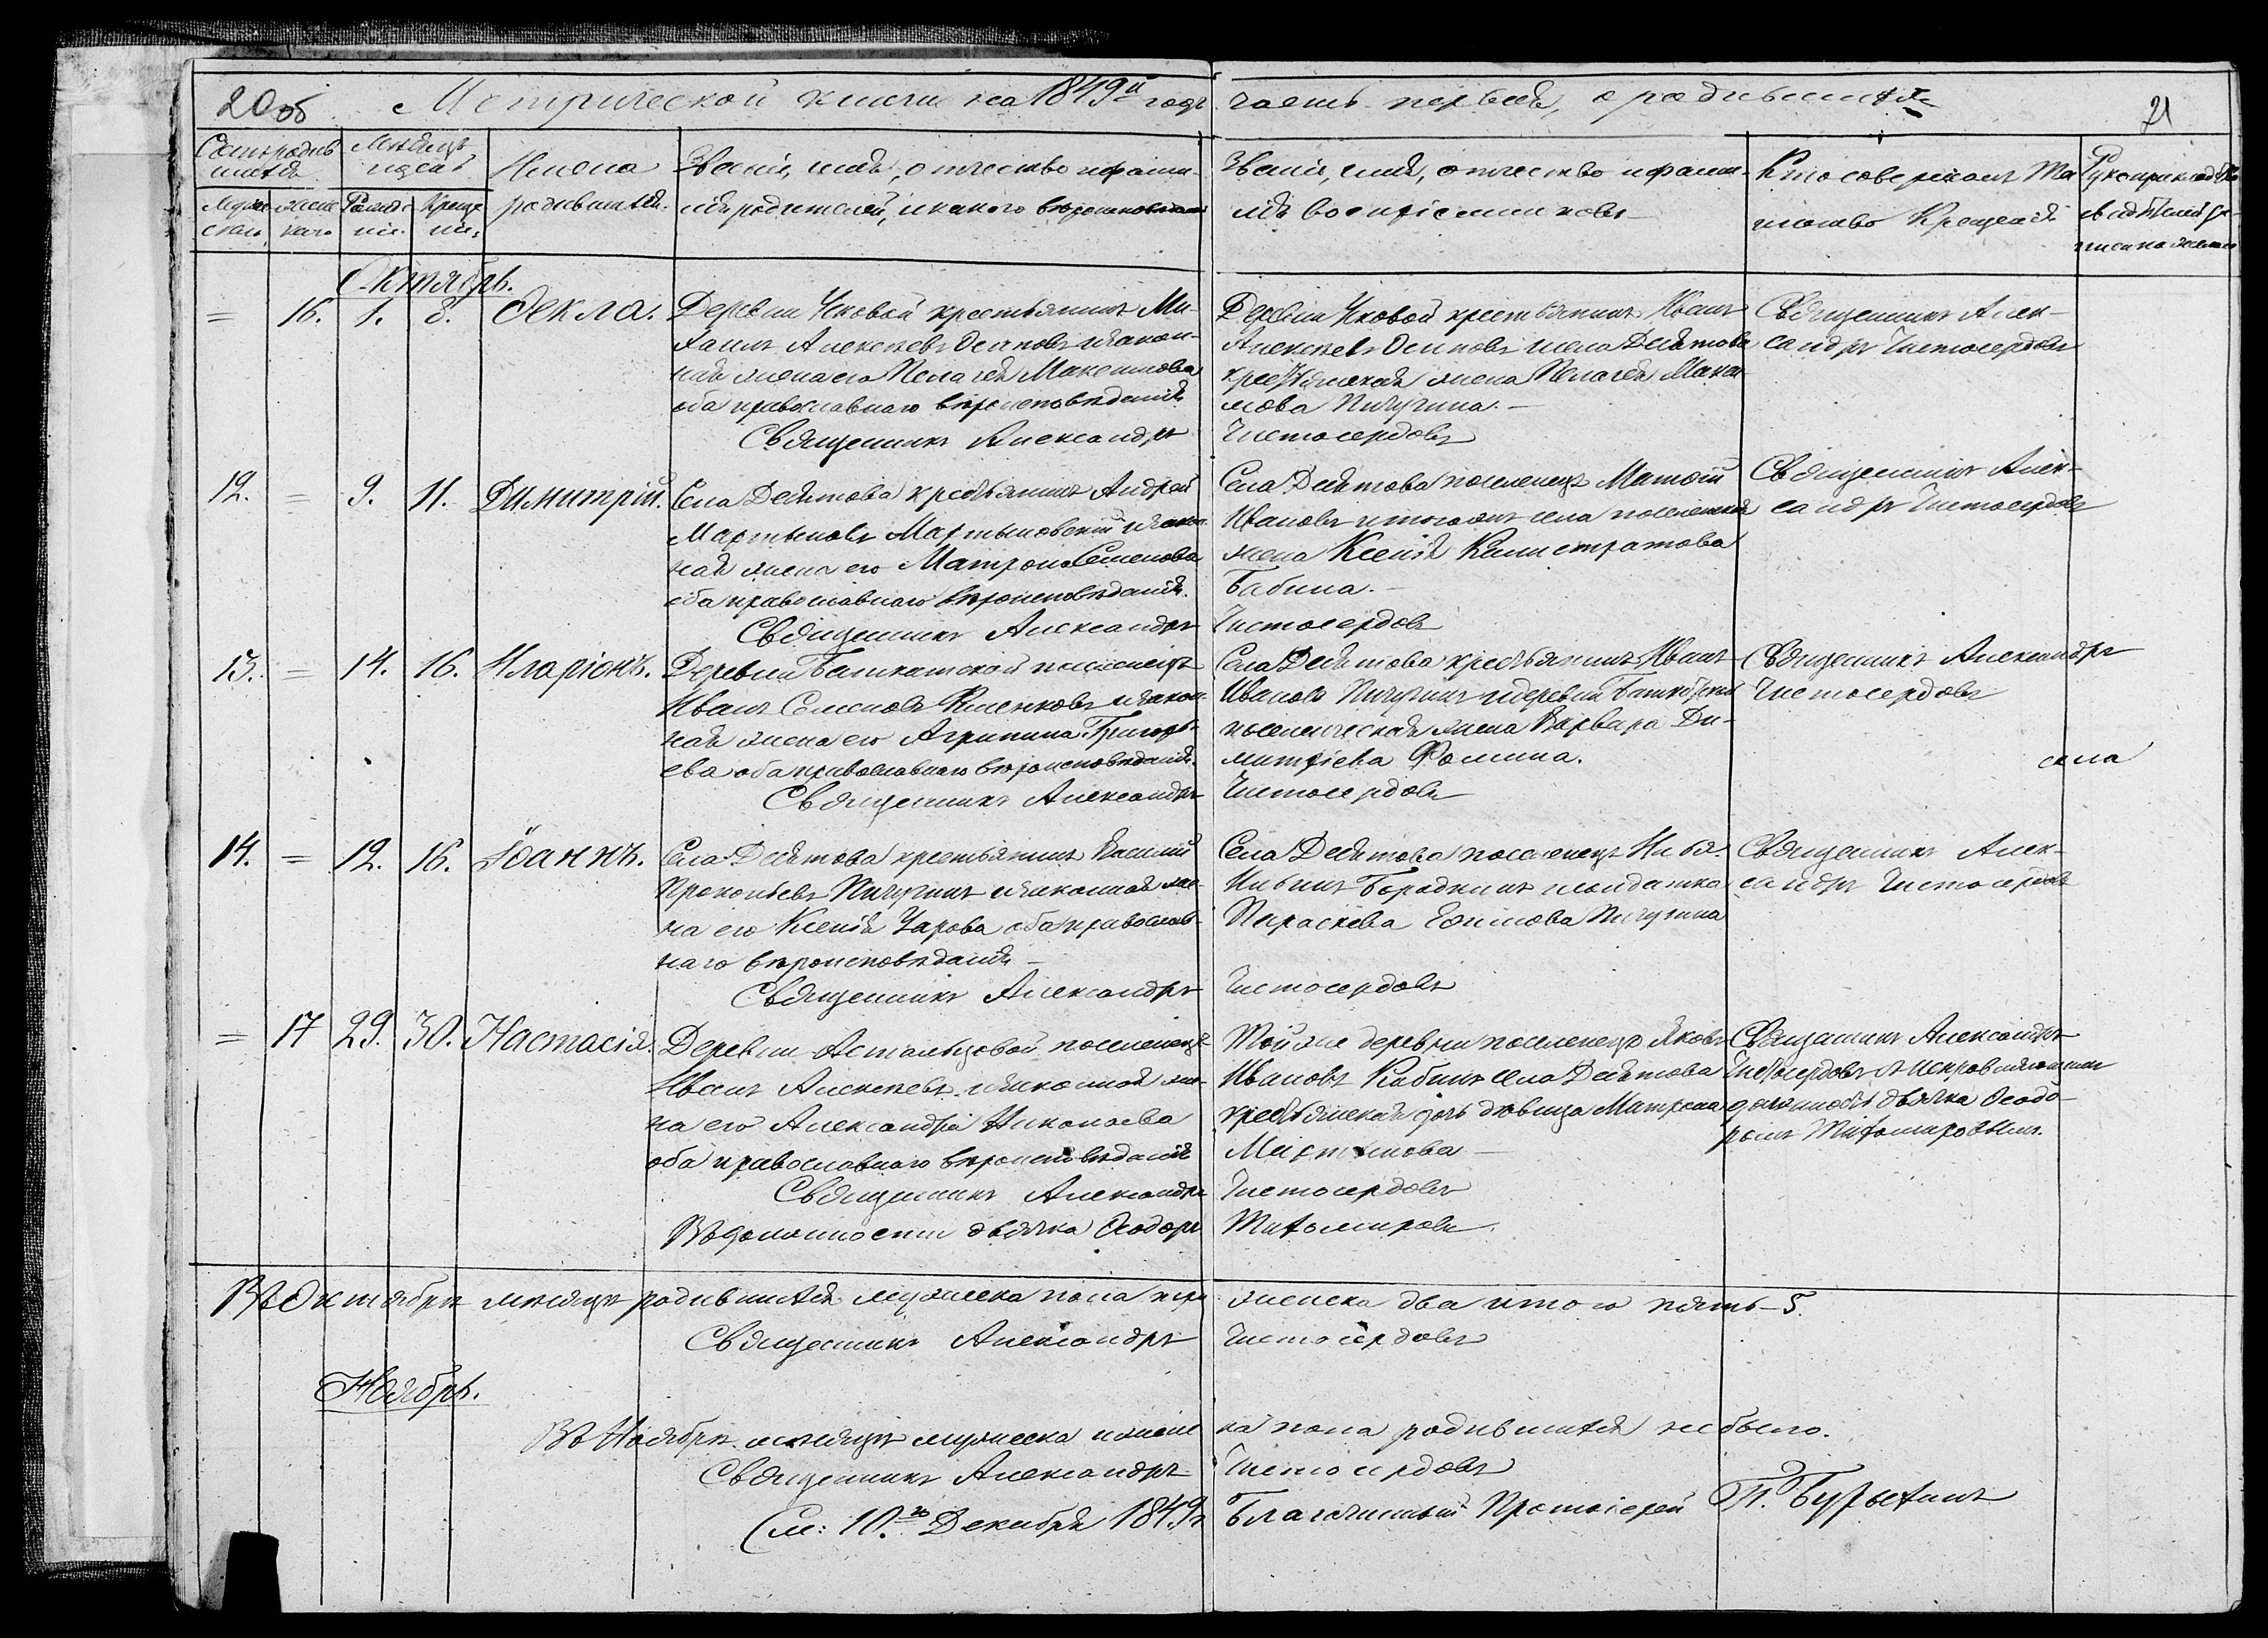 20об
Метрической книги на 1849й годъ часть первая, о родившихся
21
Счетъ родившихся
Мѣсяцъ и день
Имена родившихся.
Званіе, имя, отчество и фамилія родителей, и какого вѣроисповѣданія
Званіе, имя, отчество и фамилія воспріемниковъ
Кто совершалъ таинство Крещенія
Рукоприкладство свидѣтелей
Мужеска
женскаго
Рожденія
Крещенія
Октябрь.
= 16. 1. 8. Ѳекла.
Деревни Уковой крестьянинъ Ми-
хаилъ Алексѣевъ Осиповъ и закон-
ная жена его Пелагея Максимова
оба православнаго вѣроисповѣданія
Священникъ Александръ
Деревни Уковой крестьянинъ Иванъ
Алексѣевъ Осиповъ и села Деѣтова
крестьянская жена Пелагея Макси-
мова Пичугина.
Чистосердовъ
Священникъ Алек-
сандръ Чистосердовъ
12. = 9. 11. Димитрій.
Села Деѣтова крестьянинъ Андрей
Мартыновъ Мартыновскій и закон-
ная жена его Матрона Семенова
оба православнаго вѣроисповѣданія.
Священникъ Александръ
Села Деѣтова поселенецъ Матѳій
Ивановъ и тогоже села поселенская
жена Ксенія Калистратова
Бабина.
Чистосердовъ
Священникъ Алек-
сандръ Чистосердовъ
13. = 14. 16. Иларіонъ.
Деревни поселенецъ
Иванъ Семеновъ и закон-
ная жена его Агрипина Григорь-
ева оба православнаго вѣроисповѣданія.
Священникъ Александръ
Села Деѣтова крестьянинъ Иванъ
Ивановъ Пичугинъ и деревни
поселенческая жена Варвара Ди-
митріева Фомина.
Чистосердовъ
Священникъ Александръ
Чистосердовъ
14. = 12. 16. Іоаннъ.
Села Деѣтова крестьянинъ Василій
Прокопьевъ Пичугинъ и законная же-
на его Ксенія Уарова оба православ-
наго вѣроисповѣданія
Священникъ Александръ
Села Деѣтова поселенецъ
Бородкинъ и солдатка
Параскева Ефимова Пичугина
Чистосердовъ
Священникъ Алек-
сандръ Чистосердовъ
= 17 29. 30. Настасія.
Деревни Астальцовой поселенецъ
Иванъ Алексѣевъ и законная же-
на его Александра Николаева
оба православнаго вѣроисповѣданія
Священникъ Александръ
Въ должности дьячка Ѳеодоръ
Той же деревни поселенецъ Яковъ
Ивановъ Кабинъ села Деѣтова
крестьянская дочь дѣвица Матрона
Мартынова
Чистосердовъ
Тихомировъ.
Священникъ Александръ
Чистосердовъ съ исправляющимъ
должность дьячка Ѳеодо-
ромъ Тихомировымъ.
Въ Октябрѣ мѣсяцѣ родившихся мужеска пола три женска два итого пять 5.
Священникъ Александръ Чистосердовъ
Ноябрь.
Въ Ноябрѣ мѣсяцѣ мужеска и женска пола родившихся не было.
Священникъ Александръ Чистосердовъ
См: 10.го Декабря 1849г Благочинный Протоіерей П. Бурыхинъ